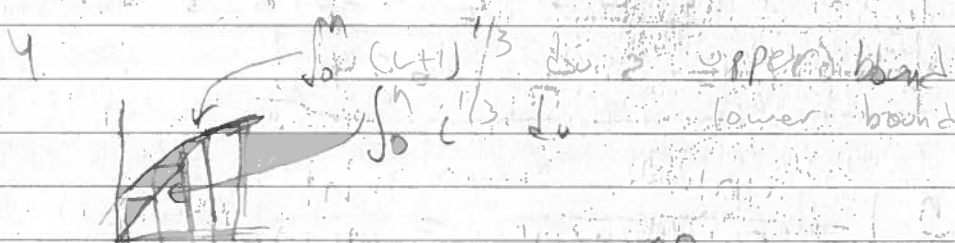 4. ∫₀ⁿ (i+1)^1/3 di ≥ upper bound
∫₀ⁿ i^1/3 di lower bound